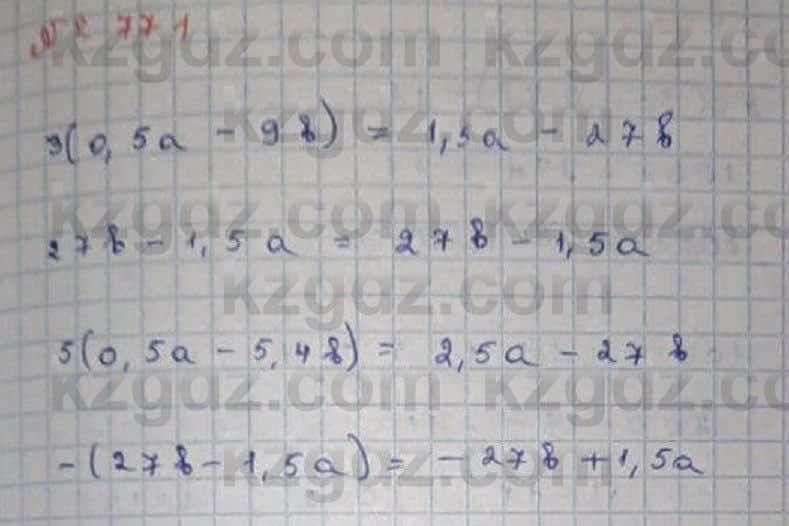 № 771
kzgdz.com kzgdz.com
kzgdz.com
3(0,5a - 9b) = 1,5a - 27b
kzgdz.com kzgdz.com
27b - 1,5a = 27b - 1,5a
kzgdz.com
5(0,5a - 5,4b) = 2,5a - 27b
kzgdz.com kzgdz.com
-(27b - 1,5a) = -27b + 1,5a
kzgdz.com